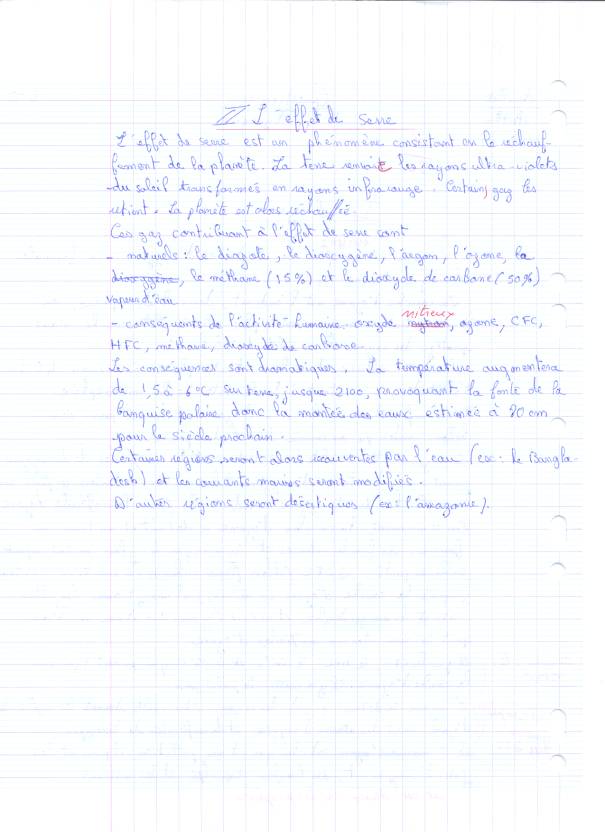 II L'effet de serre
L'effet de serre est un phénomène consistant en le réchauf-
fement de la planète. La terre renvoie les rayons ultra-violets
du soleil transformés en rayons infrarouge. Certains gaz les
retient. La planète est alors réchauffée.
Ces gaz contribuant à l'effet de serre sont
- naturels : le diazote, le dioxygène, l'argon, l'ozone, la
dioxygène, le méthane (15%) et le dioxyde de carbone (50%)
vapeur d'eau
nitreux
- conséquents de l'activité humaine : oxyde , ozone, CFC,
HFC, méthane, dioxyde de carbone.
Les conséquences sont dramatiques. La température augmentera
de 1,5 à 6°C sur terre, jusque 2100, provoquant la fonte de la
banquise polaire donc la montée des eaux estimée à 90 cm
pour le siècle prochain.
Certaines régions seront alors recouvertes par l'eau (ex : le Bangla-
desh) et les courants marins seront modifiés.
D'autres régions seront désertiques (ex : l'amazonie).